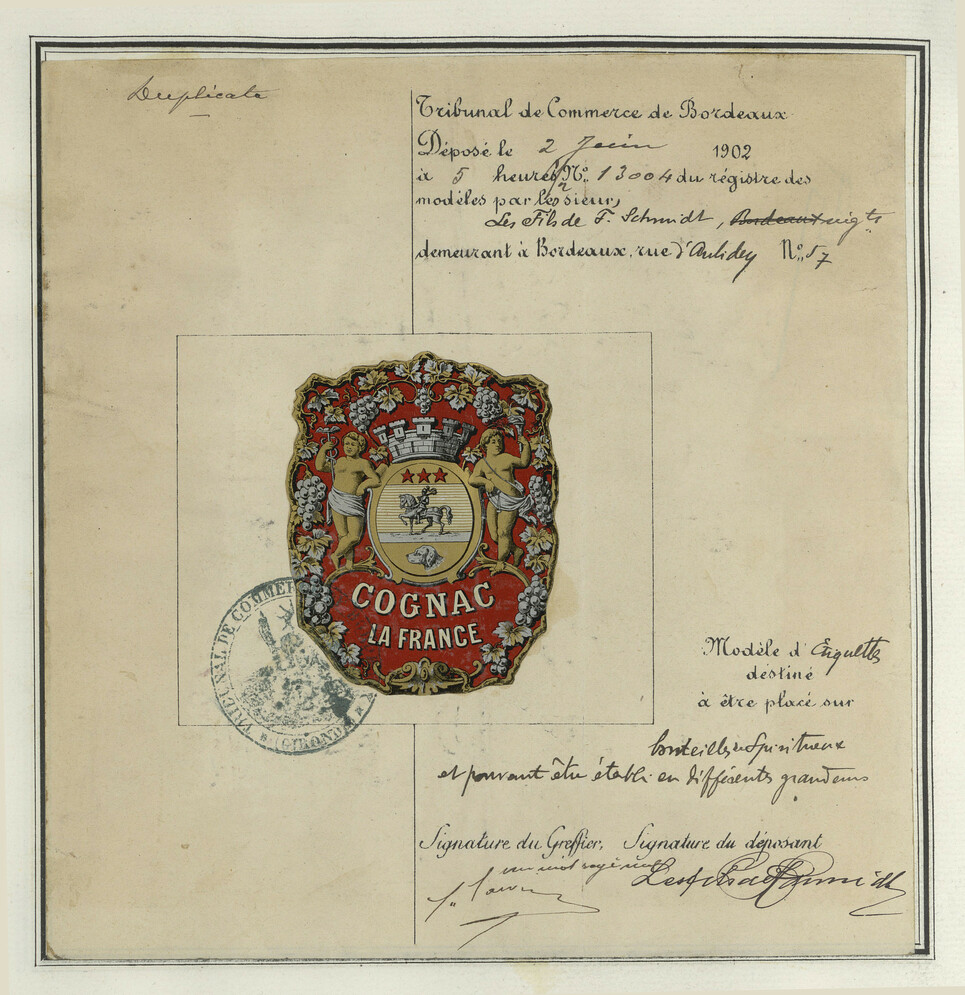 Duplicata
Tribunal de Commerce de Bordeaux
Déposé le 2 Juin 1902
à 5 heures 1/2 No. 13004 du régistre des
modèles par les sieurs
Les Fils de F. Schmidt, Bordeaux négts
demeurant à Bordeaux, rue No. 57
COGNAC
LA FRANCE
TRIBUNAL DE COMMERCE
(GIRONDE)
Modèle d'Etiquettes
destiné
à être placé sur
bouteilles Spiritueux
et pouvant être établi en différents grandeurs
Signature du Greffier, Signature du déposant
un mot rayé nul
Les fils de F Schmidt